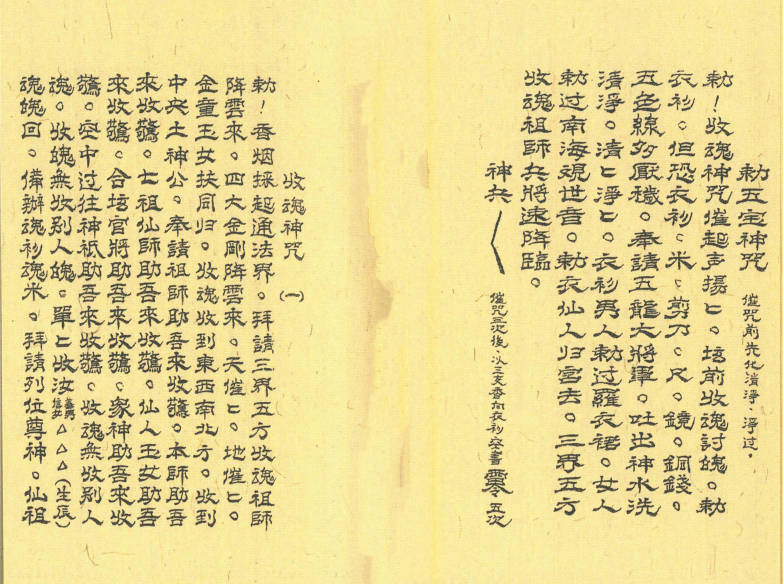 勅五宝神咒　催咒前先化清淨、淨过。
勅！收魂神咒催起声揚匕。坛前收魂討魄。勅
衣衫。但恐衣衫、米、剪刀、尺、鏡、銅錢。
五色線多厭穢。奉請五龍大將軍。吐出神水洗
清淨。清匕淨匕。衣衫男人勅过羅衣裙。女人
勅过南海观世音。勅衣仙人归宮去。三界五方
收魂祖师兵將速降臨。
神兵　催咒三次後、以三支香向衣衫空書　五次
收魂神咒　(一)
勅！香烟採起通法界。拜請三界五方收魂祖师
降雲來。四大金剛降雲來。天催匕。地催匕。
金童玉女扶同归。收魂收到東西南北方。收到
中央土神公。奉請祖师助吾來收驚。本师助吾
來收驚。七祖仙师助吾來收驚。仙人玉女助吾
來收驚。合坛官將助吾來收驚。众神助吾來收
驚。空中过往神祇助吾來收驚。收魂無收别人
魂。收魄無收别人魄。單匕收汝 △△△(生辰)
魂魄回。備辦魂衫魂米。拜請列位尊神。仙祖